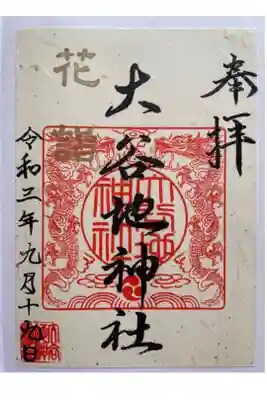 奉拝
大谷地神社
花詣
令和三年九月十九日